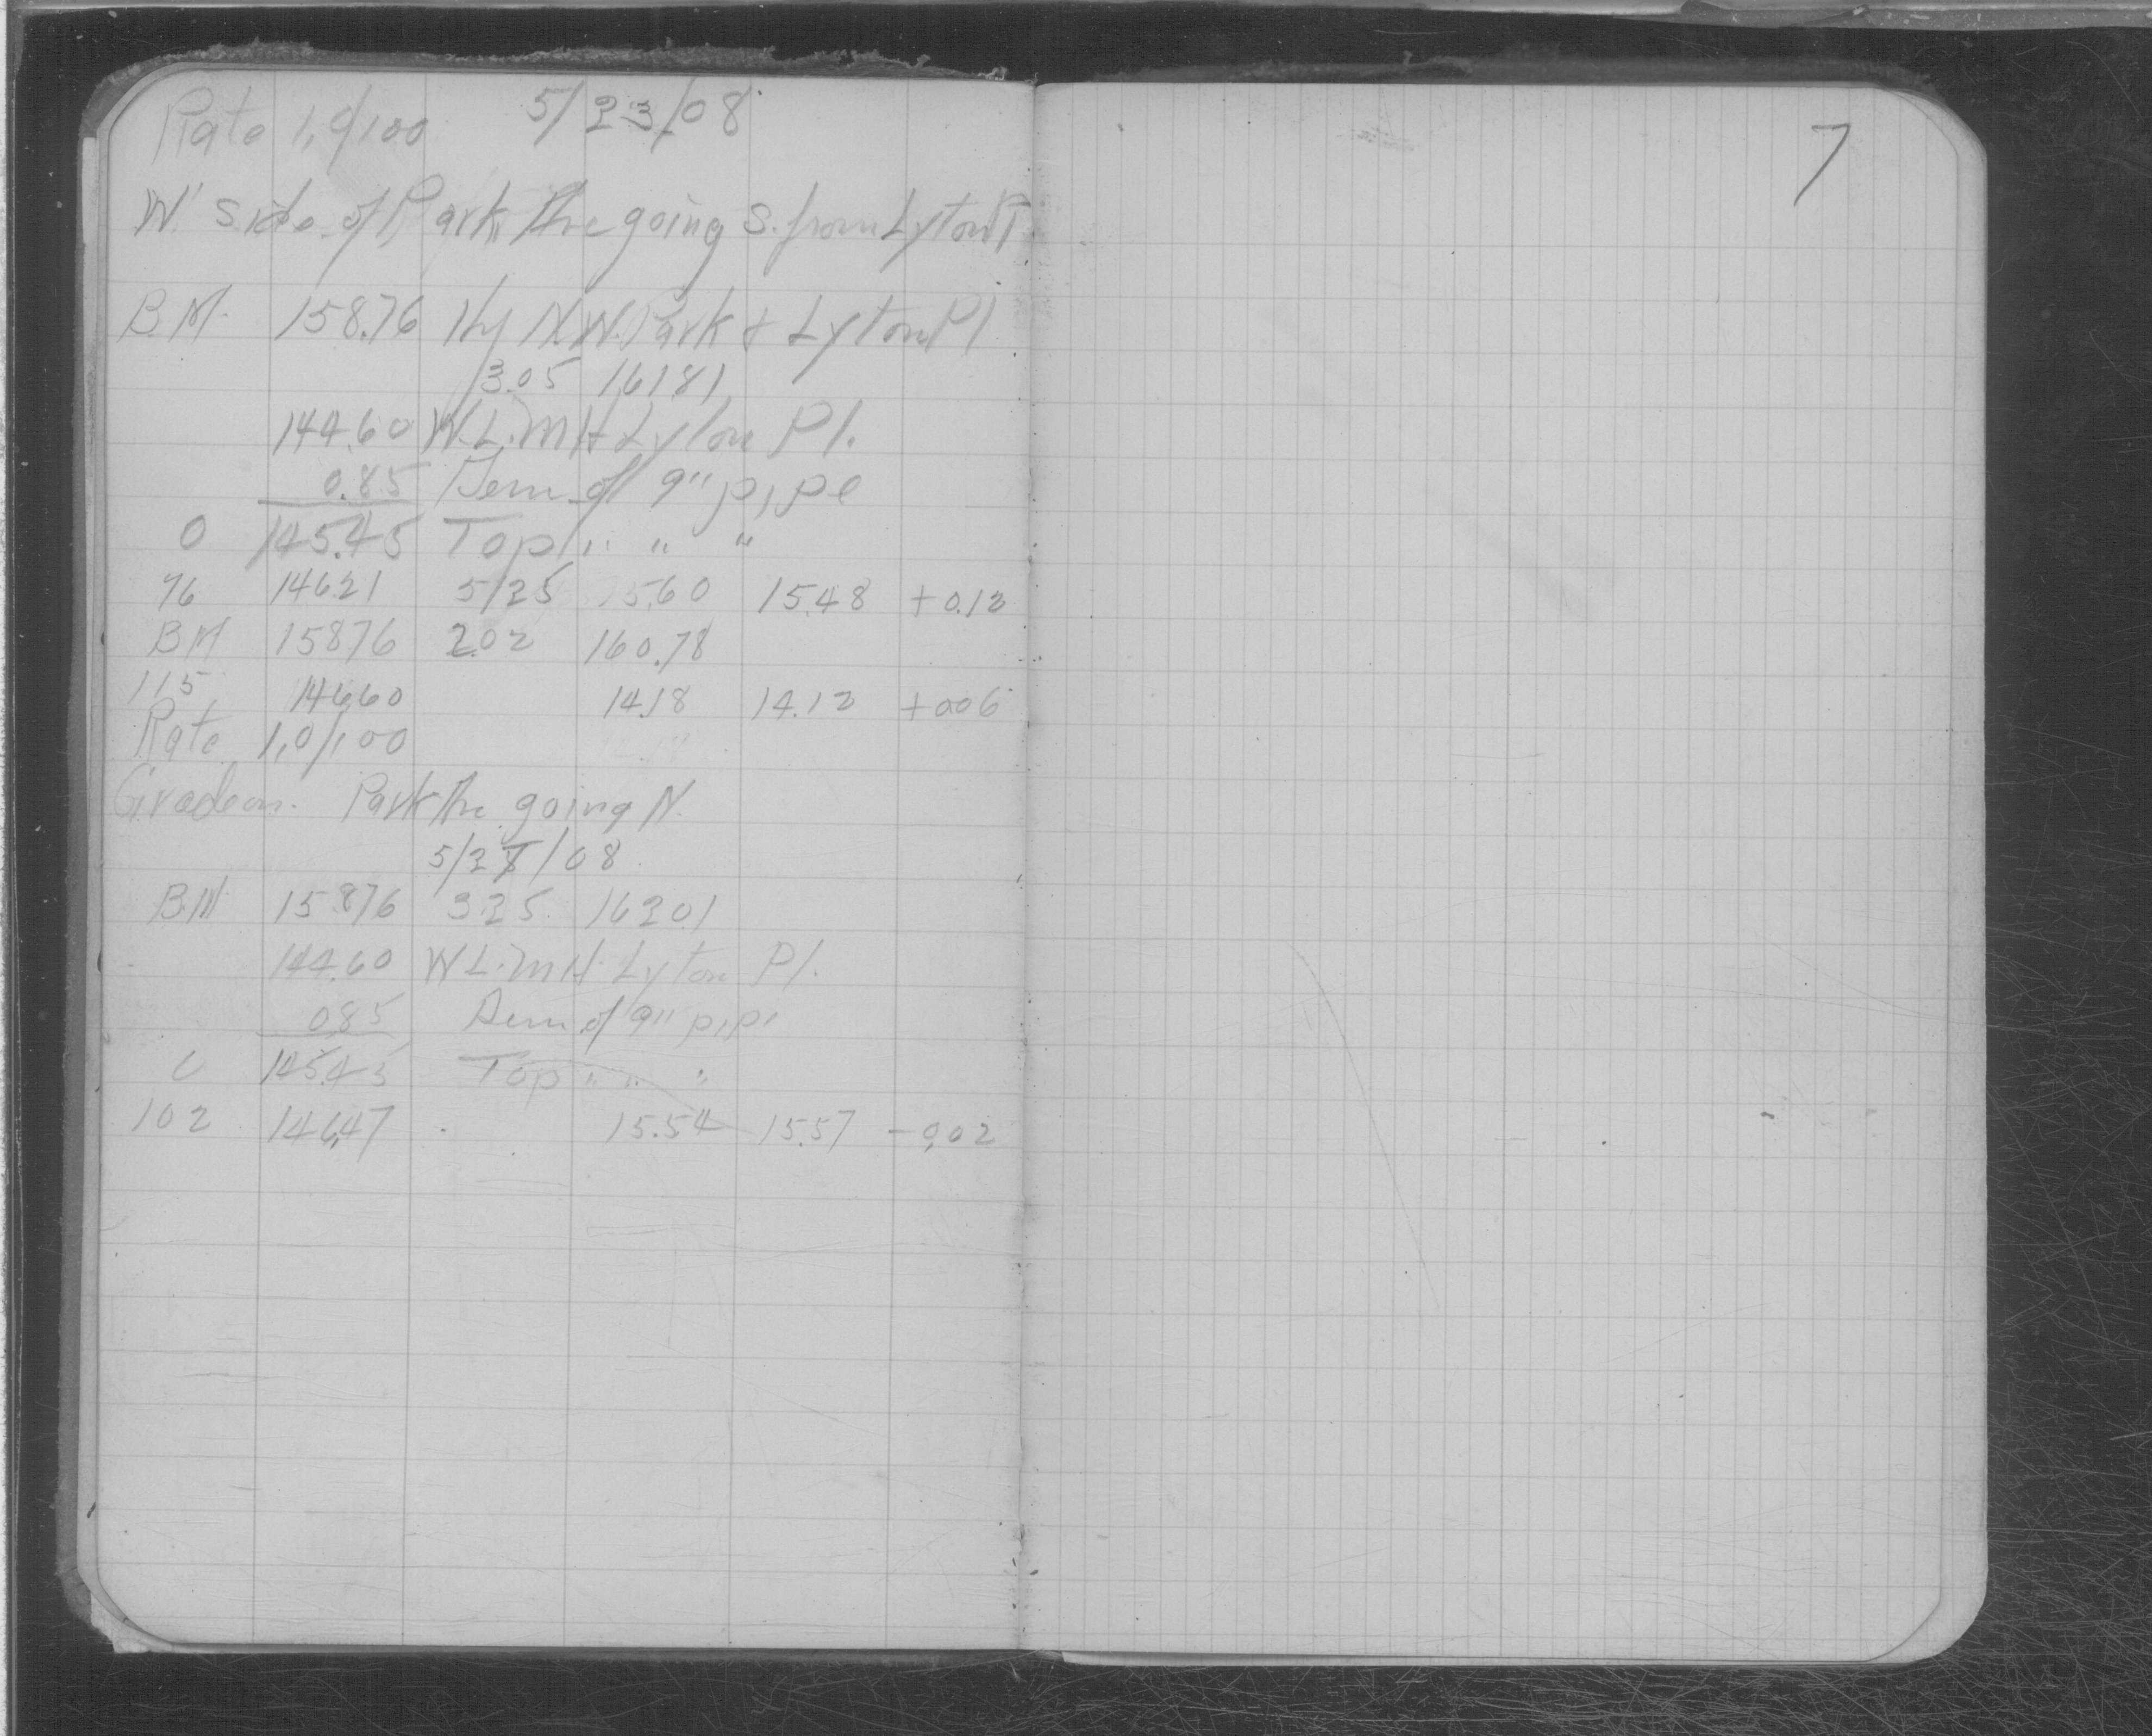 Rate 1.0/100 5/23/08
W. side of Park Ave going S. from Lyton Pl
B.M. 158.76 Hy N.W. Park & Lyton Pl
3.05 161.81
144.60 W.L. M H Lyton Pl.
0.85 Diem of 9" pipe
0 145.45 Top " " "
76 146.21 5/25 15.60 15.48 +0.12
B M 158.76 2.02 160.78
115 146.60 14.18 14.12 +0.06
Rate 1.0/100
Grade on Park Ave going N.
5/27/08
B.M. 158.76 3.25 162.01
144.60 W L. M H. Lyton Pl.
0.85 Diem of 9" pipe
0 145.45 Top " " "
102 146.47 15.54 15.57 -0.02
7